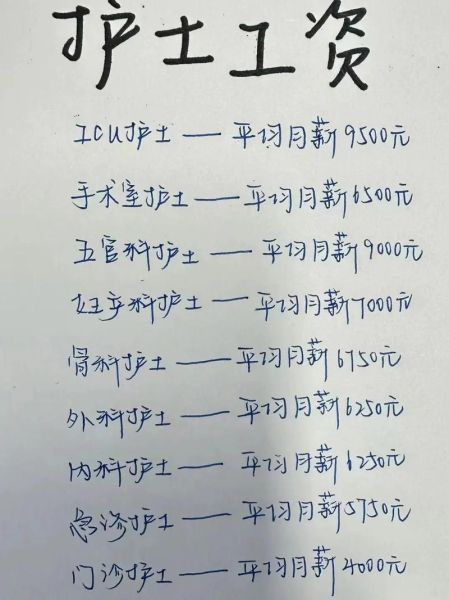 护士工资
ICU护士——平均月薪9500元
手术室护士——平均月薪6500元
五官科护士——平均月薪9000元
妇产科护士——平均月薪7000元
骨科护士——平均月薪6750元
外科护士——平均月薪6250元
内科护士——平均月薪6250元
急诊护士——平均月薪5750元
门诊护士——平均月薪4000元